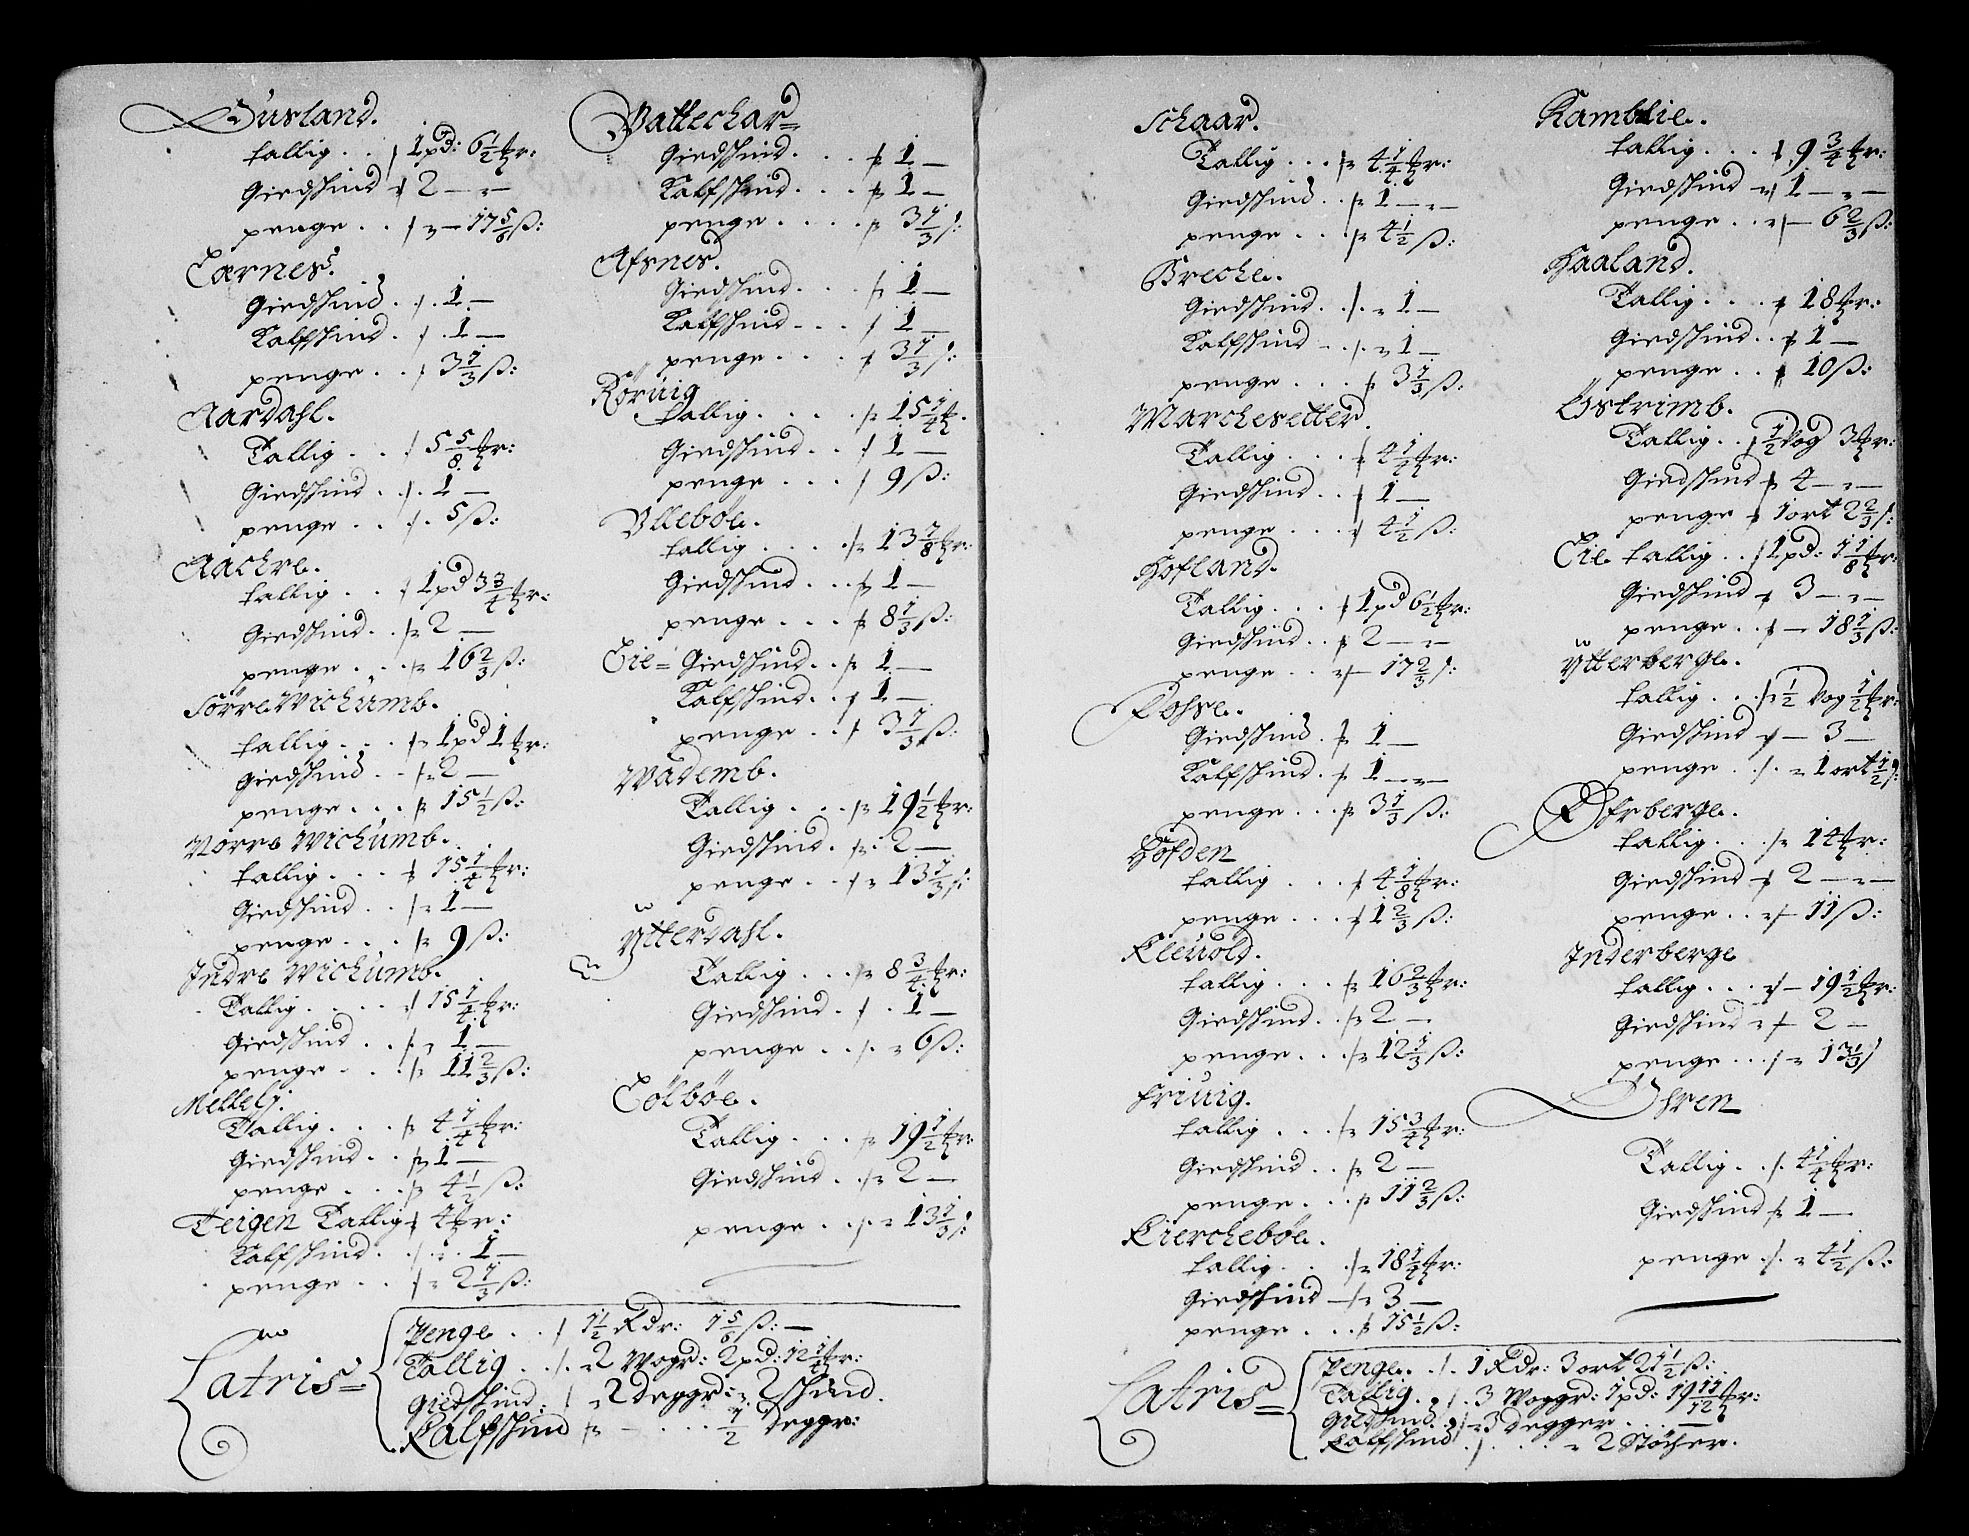 Øusland.
tallig . . 1 pd: 6½ ℔r:
Giedskind 2 —
penge . . — 17 5/6 ß:
Tarnes.
Giedskind . . 1 —
Kalfskind . . 1 —
penge . . 3 1/3 ß:
Aardahl.
Tallig . . 5 5/8 ℔r:
Giedskind . . 1 —
penge . . 5 ß:
Aachre.
tallig . . 1 pd 3 3/4 ℔r:
Giedskind . . 2 —
penge . . . 16 2/3 ß:
Sörre Wichumb.
tallig . . . 1 pd 1 ℔r:
Giedskind . . 2 —
penge . . . 15 ½ ß:
Norre Wichumb.
tallig . . . 15 1/4 ℔r:
Giedskind . . 1 —
penge . . . 9 ß:
Indre Wichumb.
Tallig . . . 15 1/4 ℔r:
Giedskind . . 1 —
penge . . . 11 2/3 ß:
Mellelj.
Tallig . . . 4 1/4 ℔r:
Giedskind . . 1 —
penge . . . 4 ½ ß:
Teigen Tallig 4 ℔r:
Kalfskind . . . 1 —
penge . . 2 1/3 ß:
Vattechar=
Giedskind . . . 1 —
Kalfskind . . . 1 —
penge . . . . 3 1/3 ß:
Afsnes.
Giedskind . . . 1 —
Kalfskind . . . 1 —
penge . . . 3 1/3 ß:
Röruig
tallig . . . . 15 1/4 ℔.
Giedskind . . 1 —
penge . . . 9 ß:
Ullebøe.
tallig . . . . 13 7/8 ℔r:
Giedskind . . . 1 —
penge . . . 8 1/3 ß:
Eie= Giedskind . . 1 —
Kalfskind . . 1 —
penge . . 3 1/3 ß:
Wademb.
Tallig . . . 19 ½ ℔r:
Giedskind . . 2 —
penge . . 13 1/3 ß:
Ytterdahl.
Tallig . . . 8 3/4 ℔r:
Giedskind . . 1 —
penge . . . 6 ß:
Tölböe.
Tallig . . . 19 1/2 ℔r:
Giedskind . . 2 —
penge . . . 13 1/3 ß:
Latris=
Penge . . 1½ Rdr: 1 5/6 ß: —
Tallig . . 2 Wogr: 2 pd: 12 1/4 ℔r:
Giedskind: 2 deggr: 2 skind.
Kalfskind — . . . 1/2 deggr:
Schaar.
Tallig . . . 4 1/4 ℔r:
Giedskind . . 1 —
penge . . . 4 ½ ß:
Breche.
Giedskind . . 1 —
Kalfskind . . 1 —
penge . . . 3 1/3 ß:
Marchesetter.
Tallig . . . 4 1/4 ℔r:
Giedskind . . 1 —
penge . . . 4 1/2 ß:
Hofland.
Tallig . . . 1 pd 6 ½ ℔r:
Giedskind . . 2 —
penge . . — 17 2/3 ß:
Fosse.
Giedskind . 1 —
Kalfskind . 1 —
penge . . . 3 1/3 ß:
Höfden
tallig . . . 4 1/8 ℔r:
penge . . . 1 2/3 ß:
Kleuold.
tallig . . . 16 2/3 ℔r:
Giedskind . . 2 —
penge . . . 12 1/3 ß:
Friuig.
tallig . . . 15 3/4 ℔r:
Giedskind . . 2 —
penge . . . 11 2/3 ß:
Kierchebøe.
tallig . . . 18 1/2 ℔r:
Giedskind — 3 —
penge . . . 15 ½ ß:
Kamblie.
tallig . . . 9 3/4 ℔r:
Giedskind 1 —
penge . . — 6 2/3 ß:
Haaland.
Tallig . . . 18 ℔r:
Giedskind . . 1 —
penge . . 10 ß:
Östrimb.
Tallig . . 1/2 Vog 3 ℔r:
Giedskind 4 —
penge 1 ort 2 2/3 ß:
Eie tallig . . 1 pd: 1 1/8 ℔r:
Giedskind 3 —
penge . . — 18 1/3 ß:
Ytterberge.
tallig . . . ½ Vog 1/2 ℔r:
Giedskind — 3 —
penge . . . 1 ort 1/2 ß:
Öfrberge.
tallig . . . 14 ℔r:
Giedskind 2 —
penge . . — 11 ß:
Inderberge
tallig . . . — 19 1/2 ℔r:
Giedskind 2 —
penge . . . 13 1/3 ß
Öhren
Tallig . . 4 1/4 ℔r:
Giedskind 1 —
penge . . 4 ½ ß:
Latris=
Penge . . 1 Rdr: 3 ort 21 ½ ß:
Tallig . . 3 Woggr: 1 pd: 19 11/12 ℔r:
Giedskind . . 3 degger . . . —
Kalfskind . . . . 2 Stöcher.